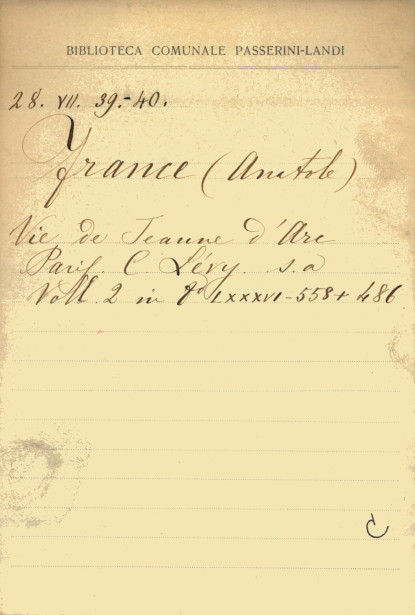 BIBLIOTECA COMUNALE PASSERINI-LANDI
28. VII. 39.-40.
France (Anatole)
Vie de Jeanne d'Arc
Paris. C. Lévy. s.a
Voll. 2 in 8º LXXXVI-558+486
C